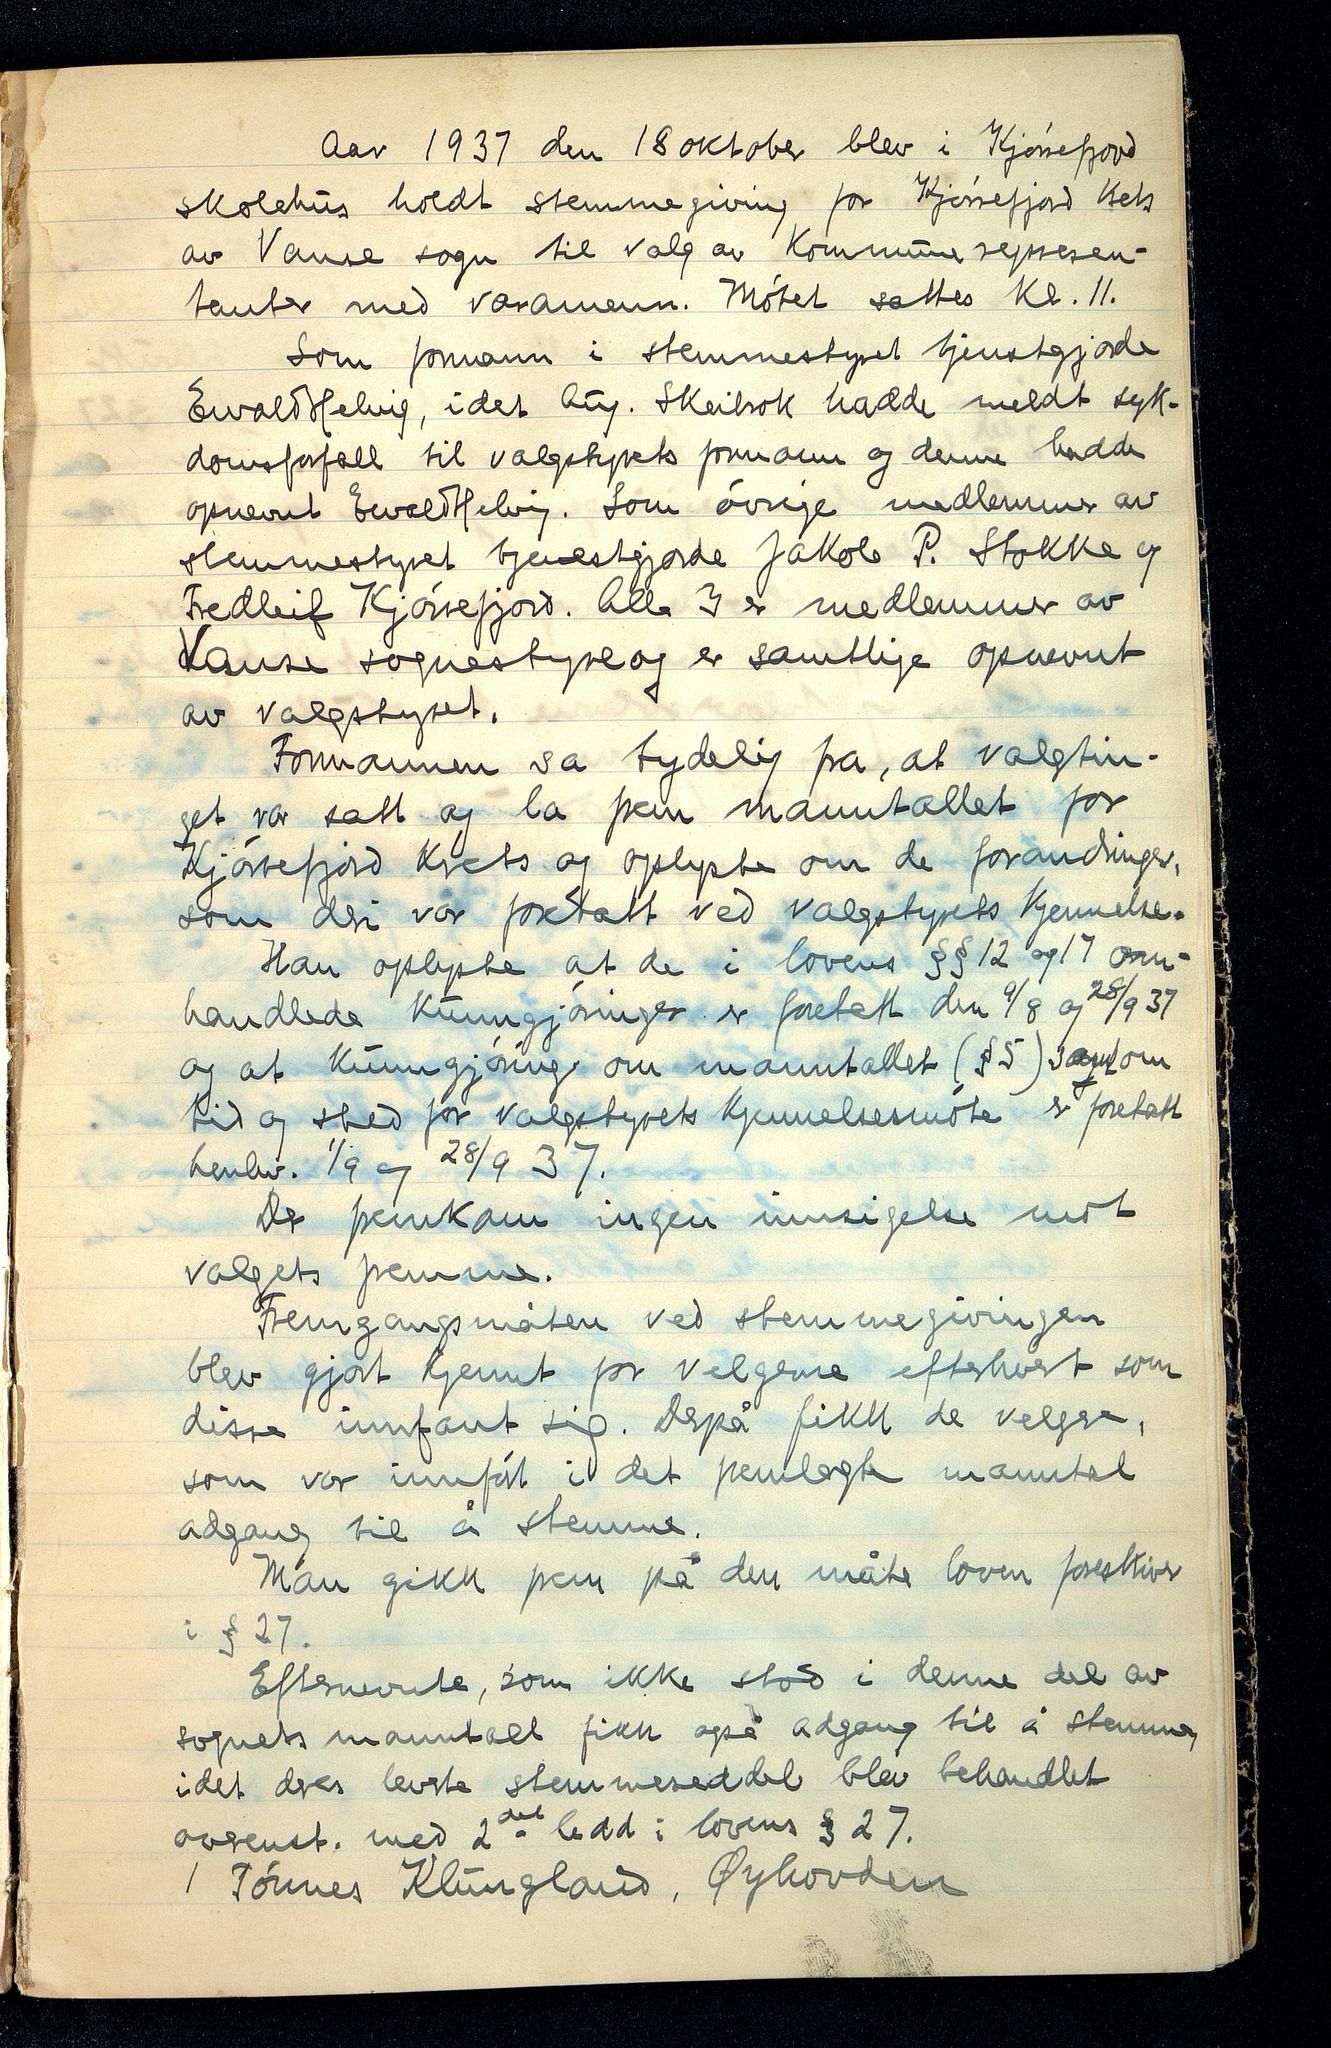 Aar 1937 den 18 oktober blev i Kjørrefjord
skolehus holdt stemmegiving for Kjørrefjord kets
av Vanse sogn til valg av kommunerepresen-
tanter med varamenn. Møtet sattes kl. 11.
Som formann i stemmestyret tjenstgjorde
Ewald Helvig, idet Aug. Skeibrok hadde meldt syk-
domsforfall til valgstyrets formann og denne hadde
opnevnt Ewald Helvig. Som øvrige medlemmer av
stemmestyret tjenestgjorde Jakob P. Stokke og
Fredleif Kjørrefjord. Alle 3 er medlemmer av
Vanse sognestyre og er samtlige opnevnt
av valgstyret.
Formannen sa tydelig fra, at valgtin-
get var satt og la frem manntallet for
Kjørrefjord krets og oplyste om de forandringer,
som deri var foretatt ved valgstyrets kjennelse.
Han oplyste at de i lovens §§ 12 og 17 om-
handlede kunngjøringer er foretatt den 9/8 og 28/9 37
og at kunngjøring om manntallet (§ 5) samt om
tid og sted for valgstyrets kjennelsesmøte er foretatt
henhv. 1/9 og 28/9 37.
Der fremkom ingen innsigelse mot
valgets fremme.
Fremgangsmåten ved stemmegivingen
blev gjort kjennt for velgerne efterhvert som
disse innfant sig. Derpå fikk de velgere,
som var innført i det fremlagte manntal
adgang til å stemme.
Man gikk frem på den måte loven foreskriver
i § 27.
Efternevnte, som ikke stod i denne del av
sognets manntall fikk også adgang til å stemme,
idet deres leverte stemmeseddel blev behandlet
overenst. med 2 det ledd i lovens § 27.
1 Tønnes Klungland, Øyhovden